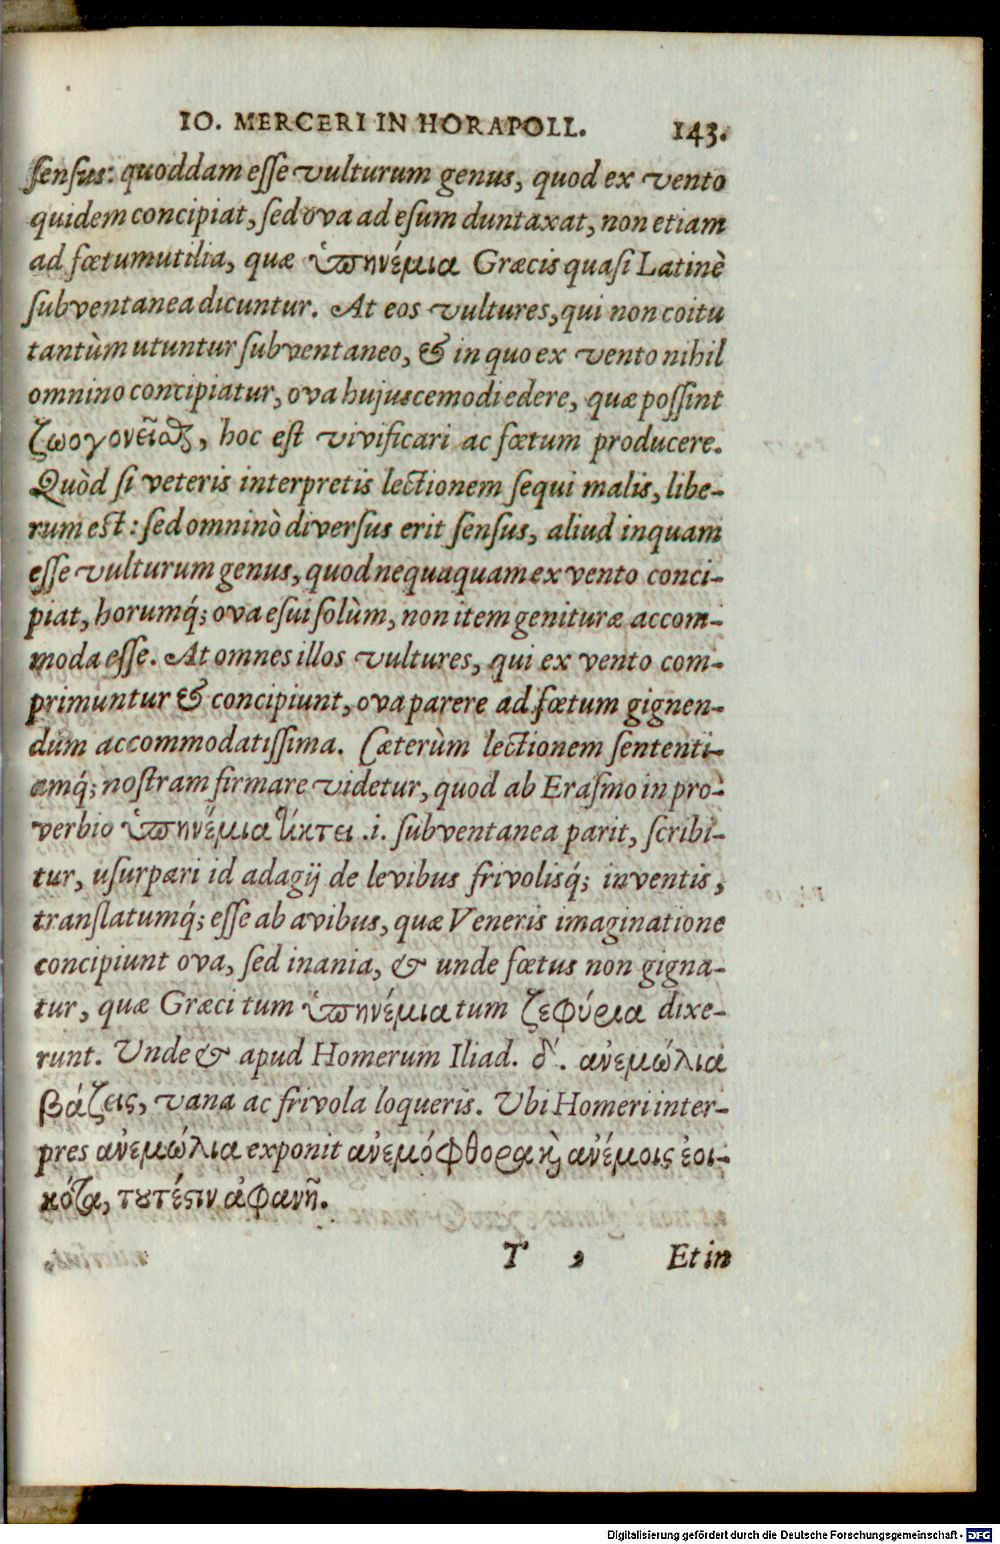 IO. MERCERI IN HORAPOLL. 143.
sensus: quoddam esse vulturum genus, quod ex vento
quidem concipiat, sed ova ad esum duntaxat, non etiam
ad fœtum utilia, quæ ὑπηνέμια Græcis quasi Latinè
subventanea dicuntur. At eos vultures, qui non coitu
tantùm utuntur subventaneo, & in quo ex vento nihil
omnino concipiatur, ova hujuscemodi edere, quæ possint
ζωογονεῖσθαι, hoc est vivificari ac fœtum producere.
Quòd si veteris interpretis lectionem sequi malis, libe-
rum est: sed omninò diversus erit sensus, aliud inquam
esse vulturum genus, quod nequaquam ex vento conci-
piat, horumq́; ova esui solùm, non item genituræ accom-
moda esse. At omnes illos vultures, qui ex vento com-
primuntur & concipiunt, ova parere ad fœtum gignen-
dum accommodatissima. Cæterùm lectionem sententi-
amq́; nostram firmare videtur, quod ab Erasmo in pro-
verbio ὑπηνέμια τίκτει .i. subventanea parit, scribi-
tur, usurpari id adagij de levibus frivolisq́; inventis,
translatumq́; esse ab avibus, quæ Veneris imaginatione
concipiunt ova, sed inania, & unde fœtus non gigna-
tur, quæ Græci tum ὑπηνέμια tum ζεφύρια dixe-
runt. Unde & apud Homerum Iliad. δ'. ἀνεμώλια
βάζεις, vana ac frivola loqueris. Ubi Homeri inter-
pres ἀνεμώλια exponit ἀνεμόφθορα καὶ ἀνέμοις ἐοι-
κότα, τουτέστιν ἀφανῆ.
T 2 Et in
Digitalisierung gefördert durch die Deutsche Forschungsgemeinschaft - DFG